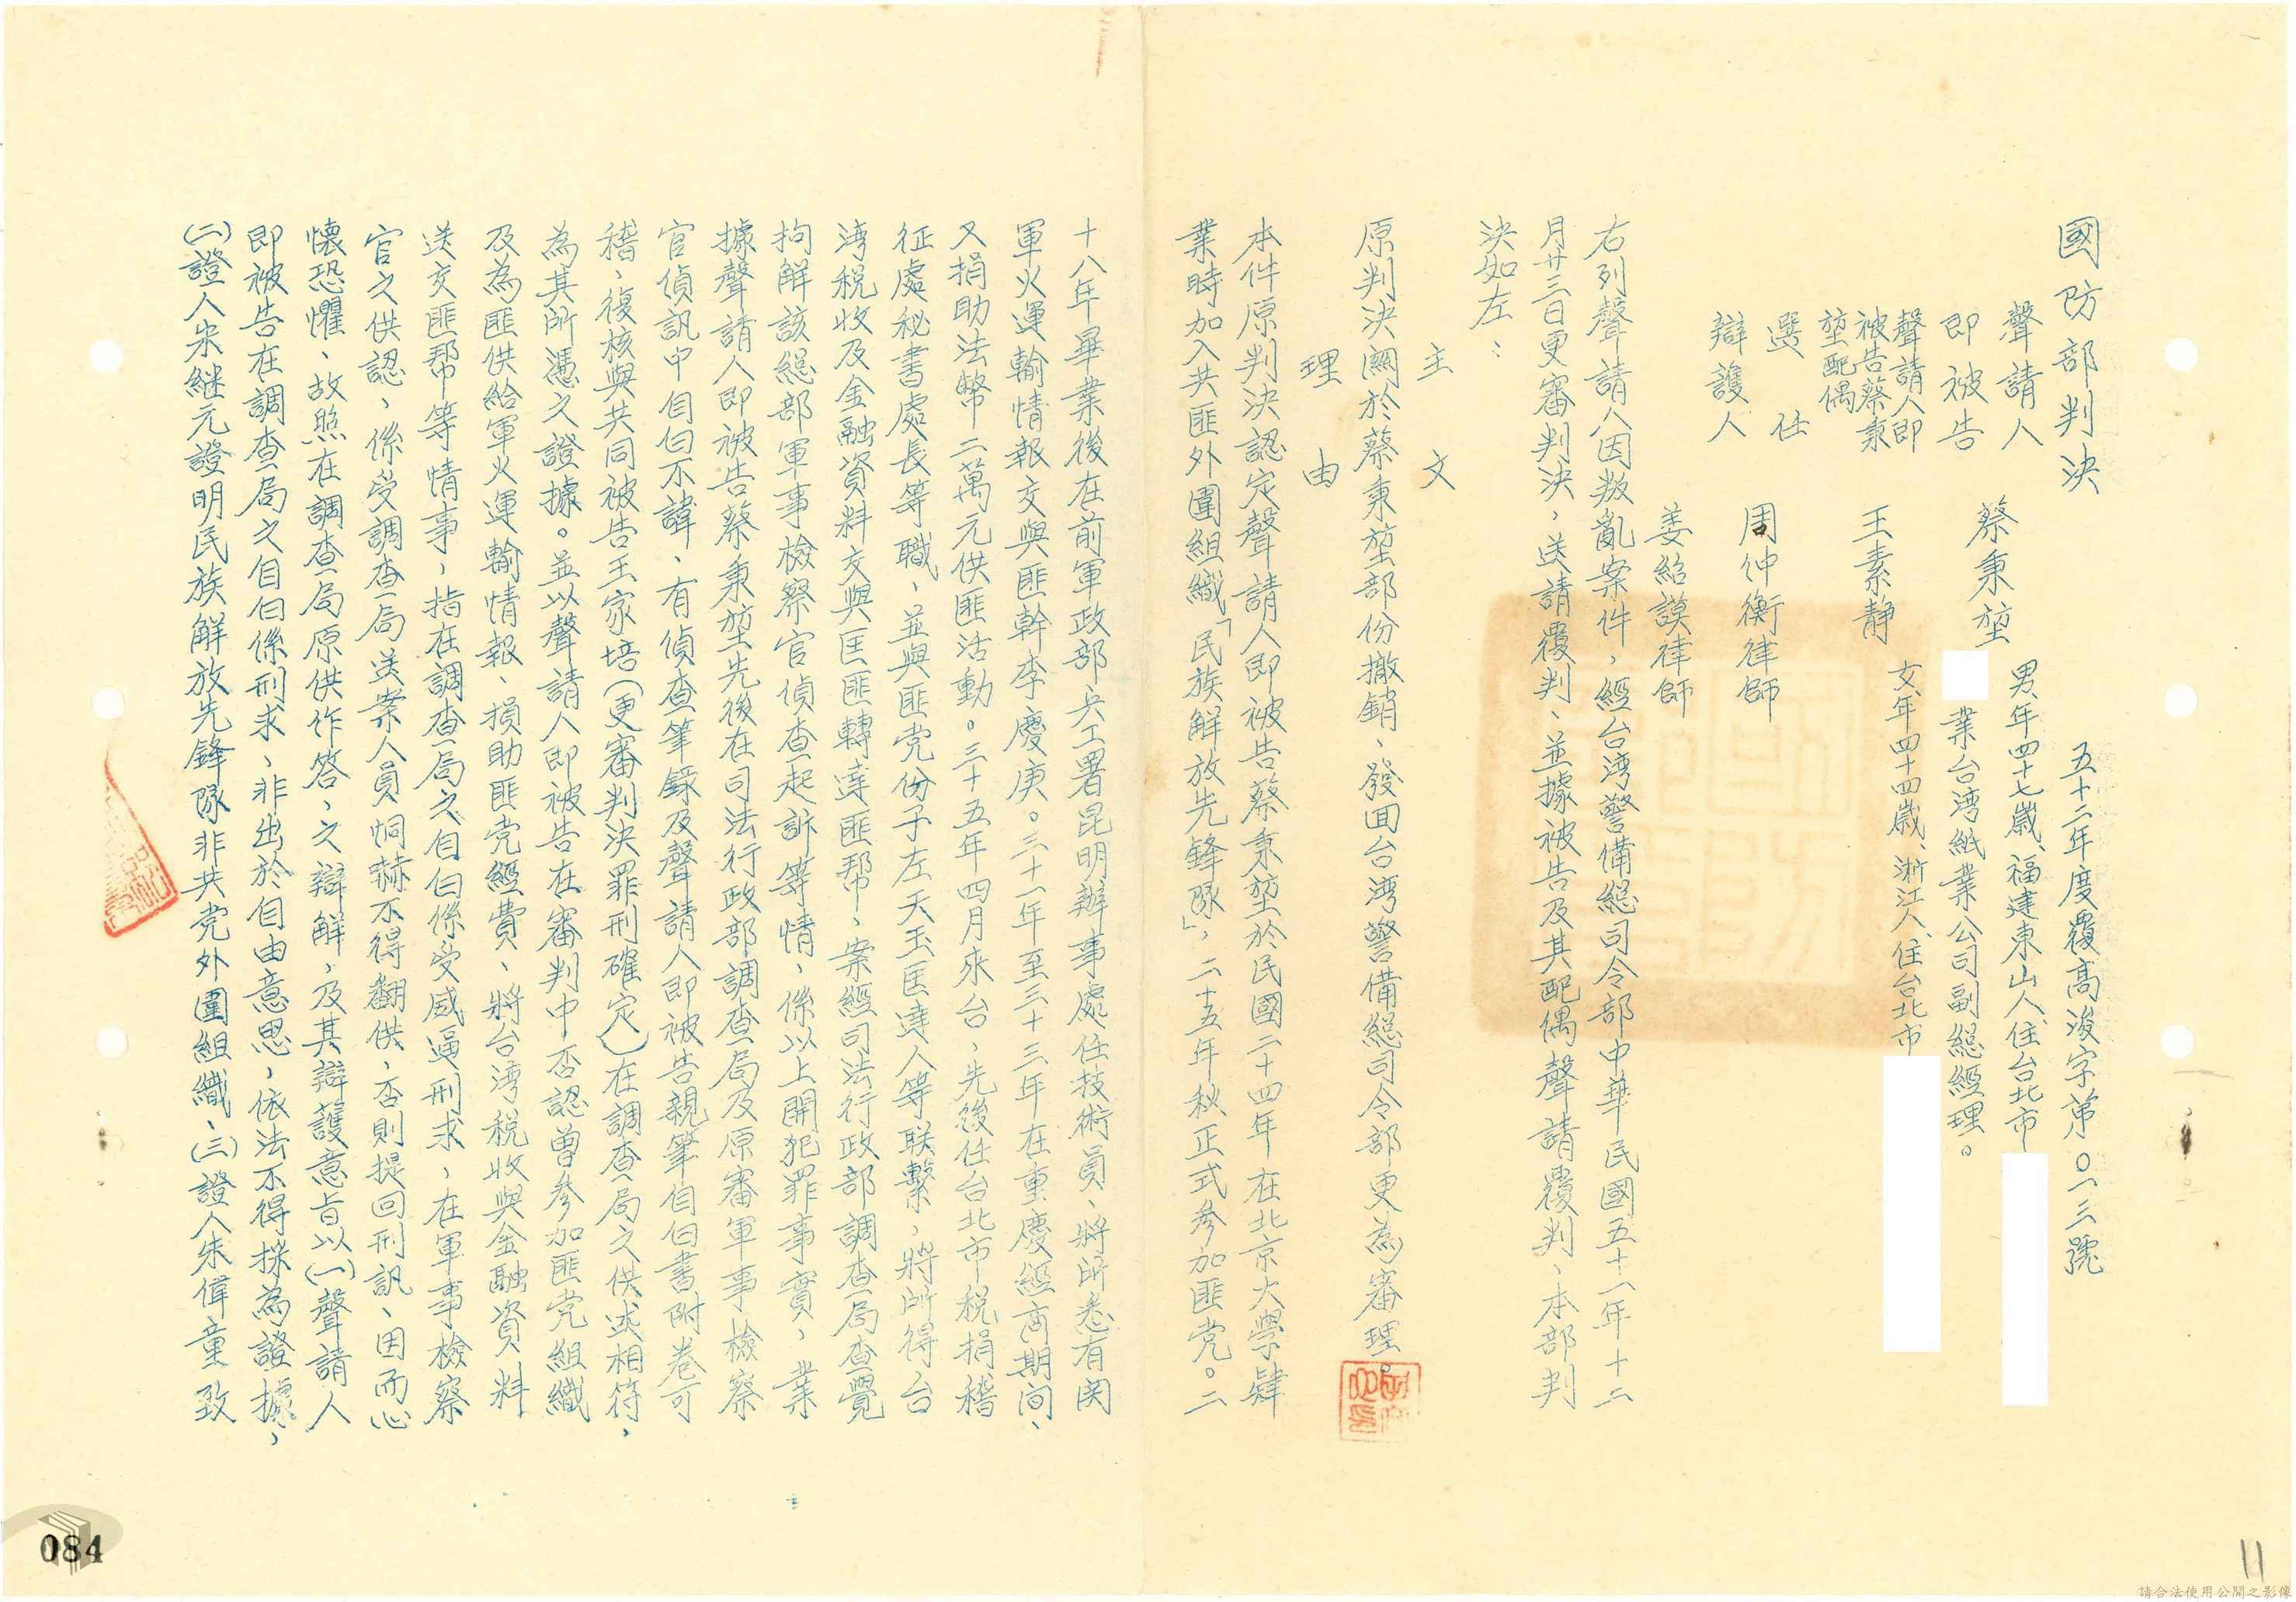 國防部判決
五十二年度覆高浚字第〇一三號
聲請人
即被告
蔡秉堃
男、年四十七歲、福建東山人、住台北市
業台湾紙業公司副總經理。
聲請人即
被告蔡秉
堃配偶
王素静
女、年四十四歲、浙江人、住台北市
選任
辯護人
周仲衡律師
姜紹謨律師
右列聲請人因叛亂案件，經台湾警備總司令部中華民國五十一年十二
月廿三日更審判決，送請覆判、並據被告及其配偶聲請覆判、本部判
決如左：
主文
原判決關於蔡秉堃部份撤銷、發回台湾警備總司令部更為審理。
理由
本件原判決認定聲請人即被告蔡秉堃於民國二十四年在北京大學肄
業時加入共匪外圍組織「民族解放先鋒隊」，二十五年秋正式參加匪党。二
十八年畢業後在前軍政部兵工署昆明辦事處任技術員、將所悉有関
軍火運輸情報交與匪幹李慶庚。三十一年至三十三年在重慶經商期间、
又捐助法幣二萬元供匪活動。三十五年四月來台、先後任台北市稅捐稽
征處秘書處長等職、並與匪党份子左天玉匡達人等联繫，將所得台
湾稅收及金融資料交與匡匪轉達匪帮、案經司法行政部調查局查覺
拘解該總部軍事檢察官偵查起訴等情，係以上開犯罪事實，業
據聲請人即被告蔡秉堃先後在司法行政部調查局及原審軍事檢察
官偵訊中自白不諱、有偵查筆錄及聲請人即被告親筆自白書附卷可
稽、復核與共同被告王家培（更審判決罪刑確定）在調查局之供述相符，
為其所憑之證據。並以聲請人即被告在審判中否認曾參加匪党組織
及為匪供給軍火運輸情報、損助匪党經費、將台湾稅收與金融資料
送交匪帮等情事，指在調查局之自白係受威逼刑求，在軍事檢察
官之供認，係受調查局送案人員恫赫不得翻供，否則提回刑訊、因而心
懐恐懼、故照在調查局原供作答，之辯解，及其辯護意旨以(一)聲請人
即被告在調查局之自白係刑求、非出於自由意思，依法不得採為證據，
(二)證人宋継元證明民族解放先鋒隊非共党外圍組織、(三)證人朱偉童致
084
11
請合法使用公開之影像